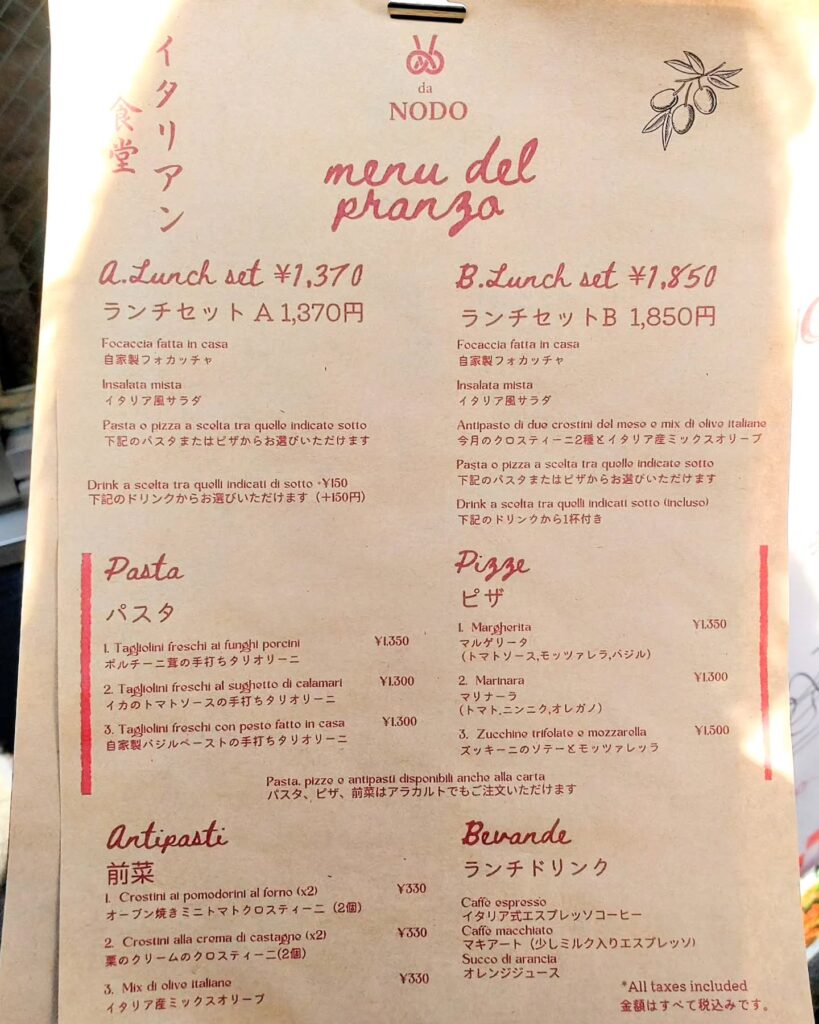 イタリアン
食堂
da
NODO
menu del
pranzo
A.Lunch set ¥1,370
ランチセット A 1,370円
Focaccia fatta in casa
自家製フォカッチャ
Insalata mista
イタリア風サラダ
Pasta o pizza a scelta tra quelle indicate sotto
下記のパスタまたはピザからお選びいただけます
Drink a scelta tra quelli indicati di sotto +¥150
下記のドリンクからお選びいただけます（+150円）
B.Lunch set ¥1,850
ランチセットB 1,850円
Focaccia fatta in casa
自家製フォカッチャ
Insalata mista
イタリア風サラダ
Antipasto di due crostini del mese e mix di olive italiane
今月のクロスティーニ2種とイタリア産ミックスオリーブ
Pasta o pizza a scelta tra quelle indicate sotto
下記のパスタまたはピザからお選びいただけます
Drink a scelta tra quelli indicati sotto (incluso)
下記のドリンクから1杯付き
Pasta
パスタ
1. Tagliolini freschi ai funghi porcini ¥1.350
ポルチーニ茸の手打ちタリオリーニ
2. Tagliolini freschi al sughetto di calamari ¥1.300
イカのトマトソースの手打ちタリオリーニ
3. Tagliolini freschi con pesto fatto in casa ¥1.300
自家製バジルペーストの手打ちタリオリーニ
Pizze
ピザ
1. Margherita ¥1.350
マルゲリータ
（トマトソース,モッツァレラ,バジル）
2. Marinara ¥1.300
マリナーラ
（トマト,ニンニク,オレガノ）
3. Zucchine trifolate e mozzarella ¥1.500
ズッキーニのソテーとモッツァレッラ
Pasta, pizze e antipasti disponibili anche alla carta
パスタ、ピザ、前菜はアラカルトでもご注文いただけます
Antipasti
前菜
1. Crostini ai pomodorini al forno (x2) ¥330
オーブン焼きミニトマトクロスティーニ（2個）
2. Crostini alla crema di castagne (x2) ¥330
栗のクリームのクロスティーニ(2個)
3. Mix di olive italiane ¥330
イタリア産ミックスオリーブ
Bevande
ランチドリンク
Caffè espresso
イタリア式エスプレッソコーヒー
Caffè macchiato
マキアート（少しミルク入りエスプレッソ）
Succo di arancia
オレンジジュース
*All taxes included
金額はすべて税込みです。